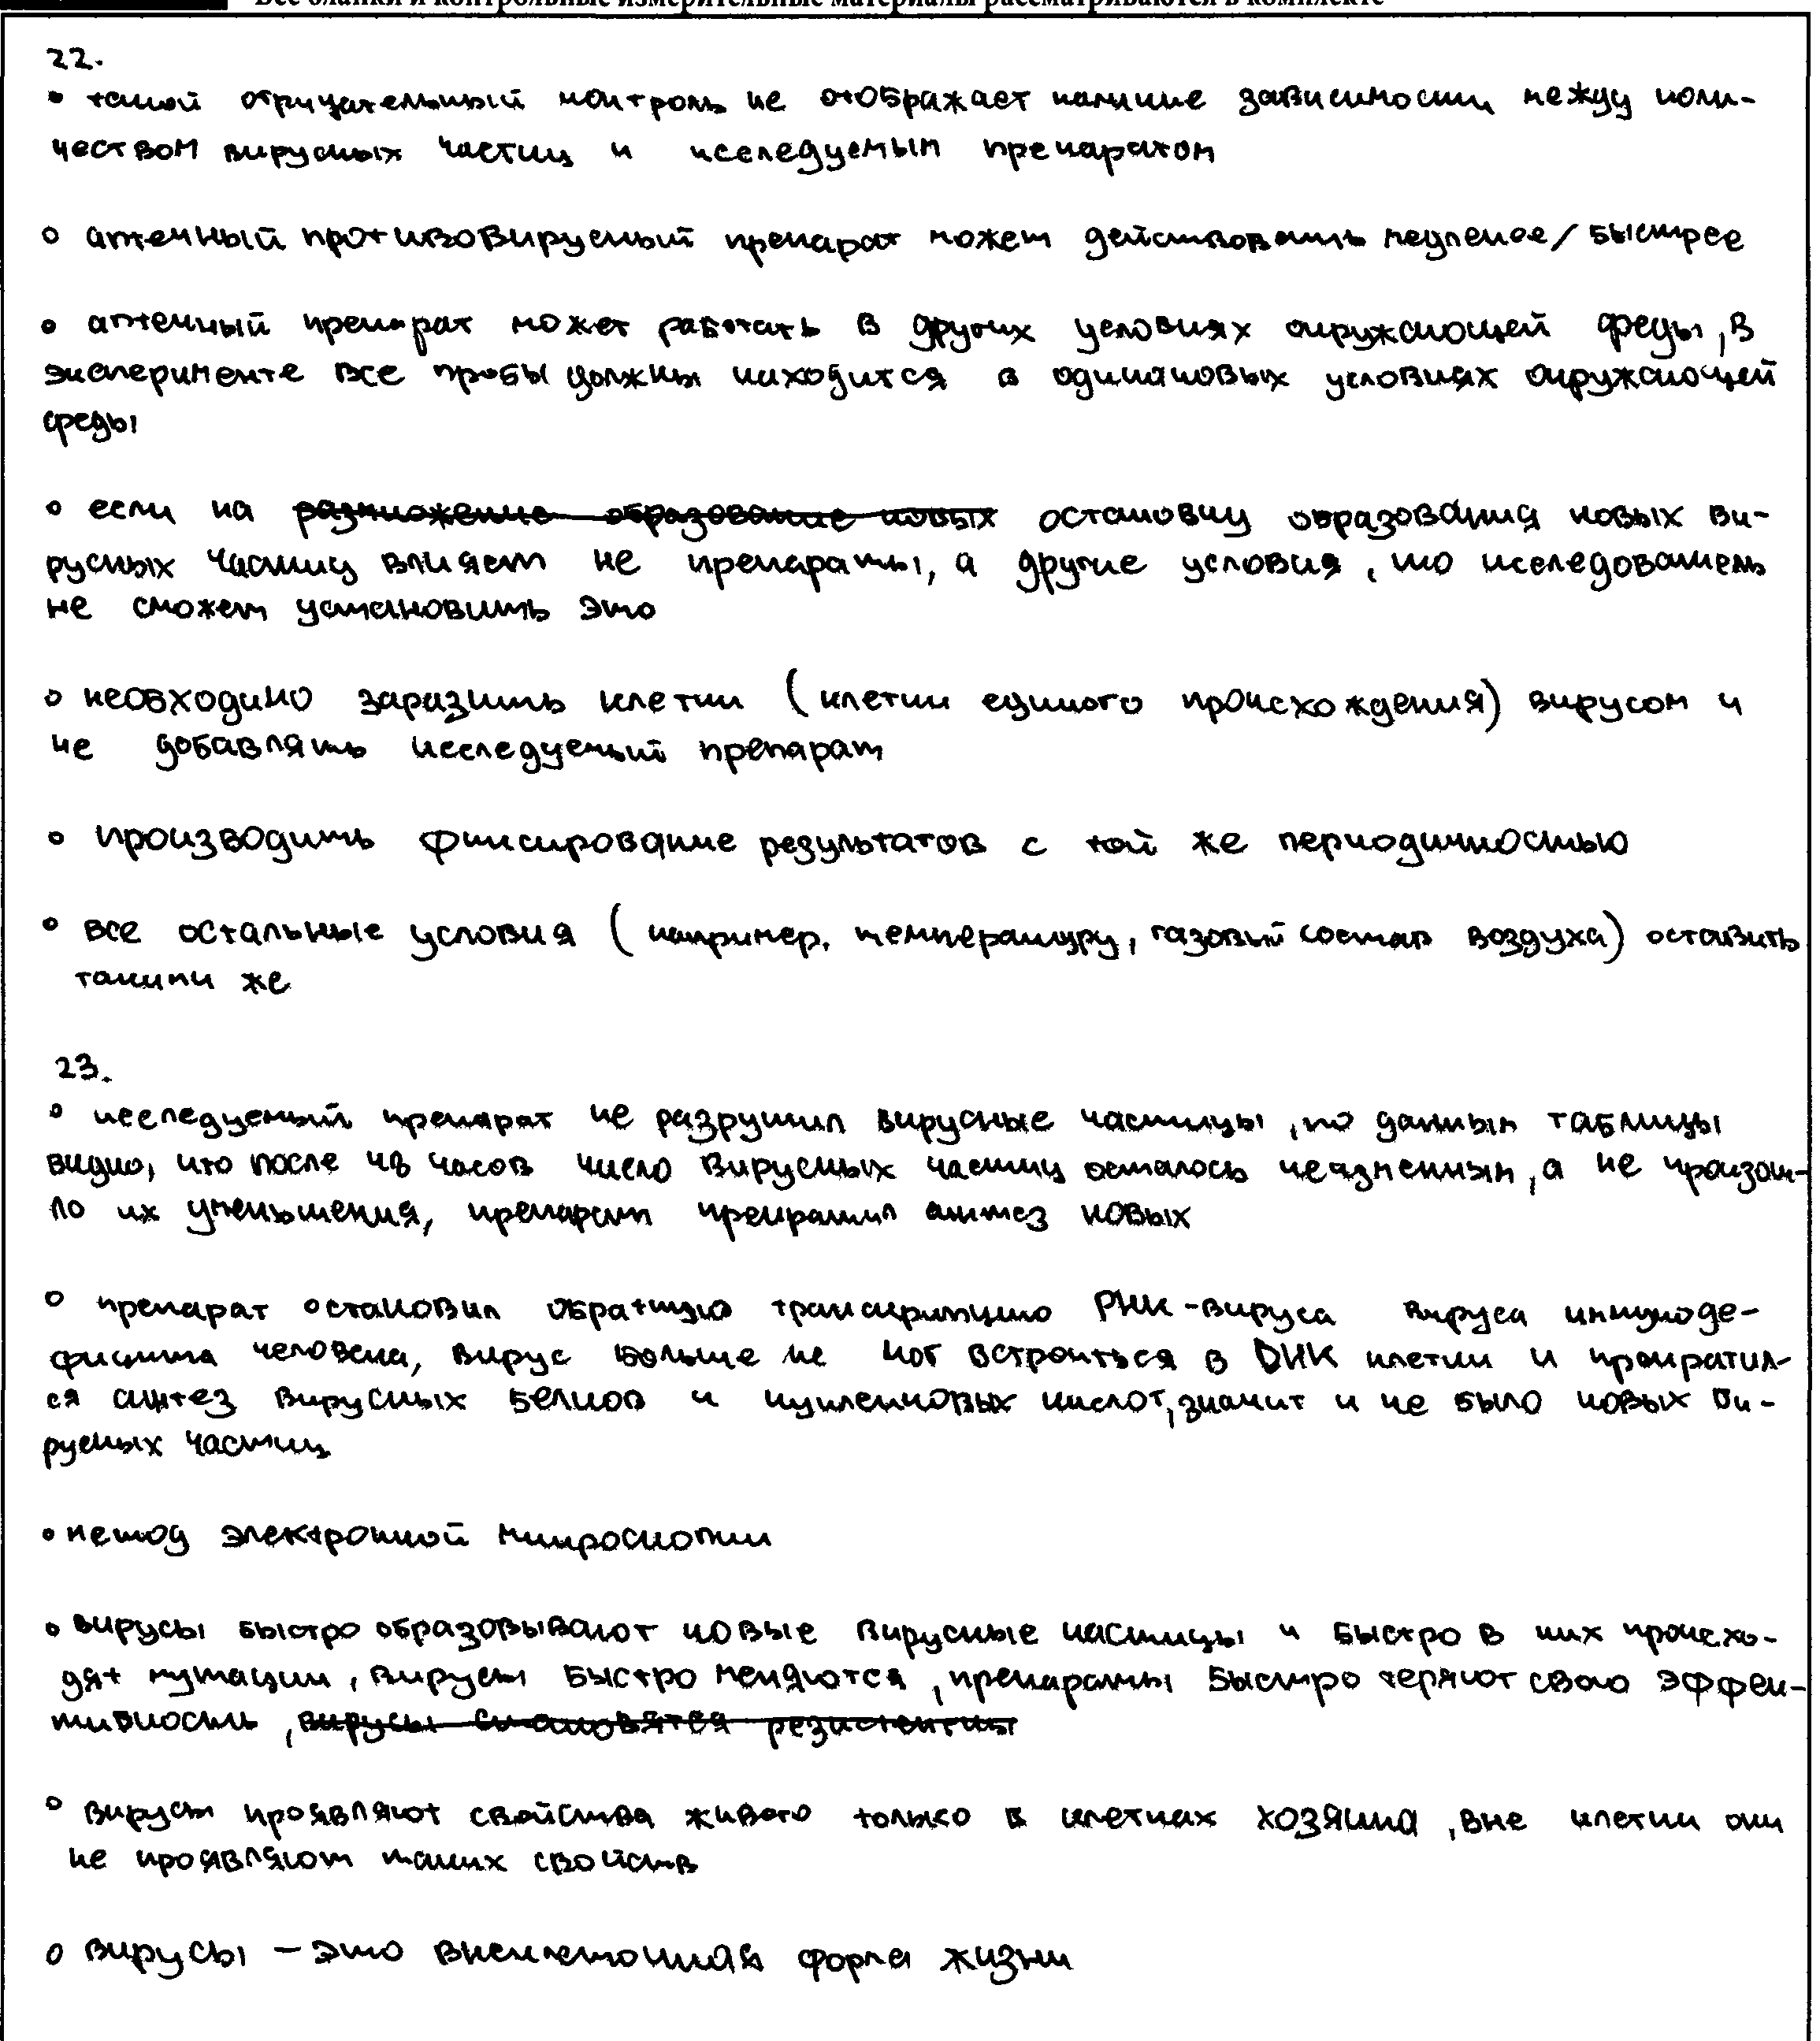 Все бланки и контрольные измерительные материалы рассматриваются в комплекте
22.
• такой отрицательный контроль не отображает наличие зависимости между коли-
чеством вирусных частиц и исследуемым препаратом
• аптечный противовирусный препарат может действовать медленее/быстрее
• аптечный препарат может работать в других условиях окружающей среды, в
эксперименте все пробы должны находится в одинаковых условиях окружающей
среды
• если на размножение образование новых остановку образования новых ви-
русных частиц влияет не препараты, а другие условия, то исследователь
не сможет установить это
• необходимо заразить клетки (клетки единого происхождения) вирусом и
не добавлять исследуемый препарат
• производить фиксирование результатов с той же периодичностью
• все остальные условия (например, температуру, газовый состав воздуха) оставить
такими же
23.
• исследуемый препарат не разрушил вирусные частицы, по данным таблицы
видно, что после 48 часов число вирусных частиц осталось неизменным, а не произош-
ло их уменьшения, препарат прекратил синтез новых
• препарат остановил обратную транскрипцию РНК-вируса вируса иммуноде-
фицита человека, вирус больше не мог встроиться в ДНК клетки и прекратил-
ся синтез вирусных белков и нуклеиновых кислот, значит и не было новых ви-
русных частиц
• метод электронной микроскопии
• вирусы быстро образовывают новые вирусные частицы и быстро в них происхо-
дят мутации, вирусы быстро меняются, препараты быстро теряют свою эффек-
тивность, вирусы становятся резистентны
• вирусы проявляют свойства живого только в клетках хозяина, вне клетки они
не проявляют таких свойств
• вирусы - это внеклеточная форма жизни